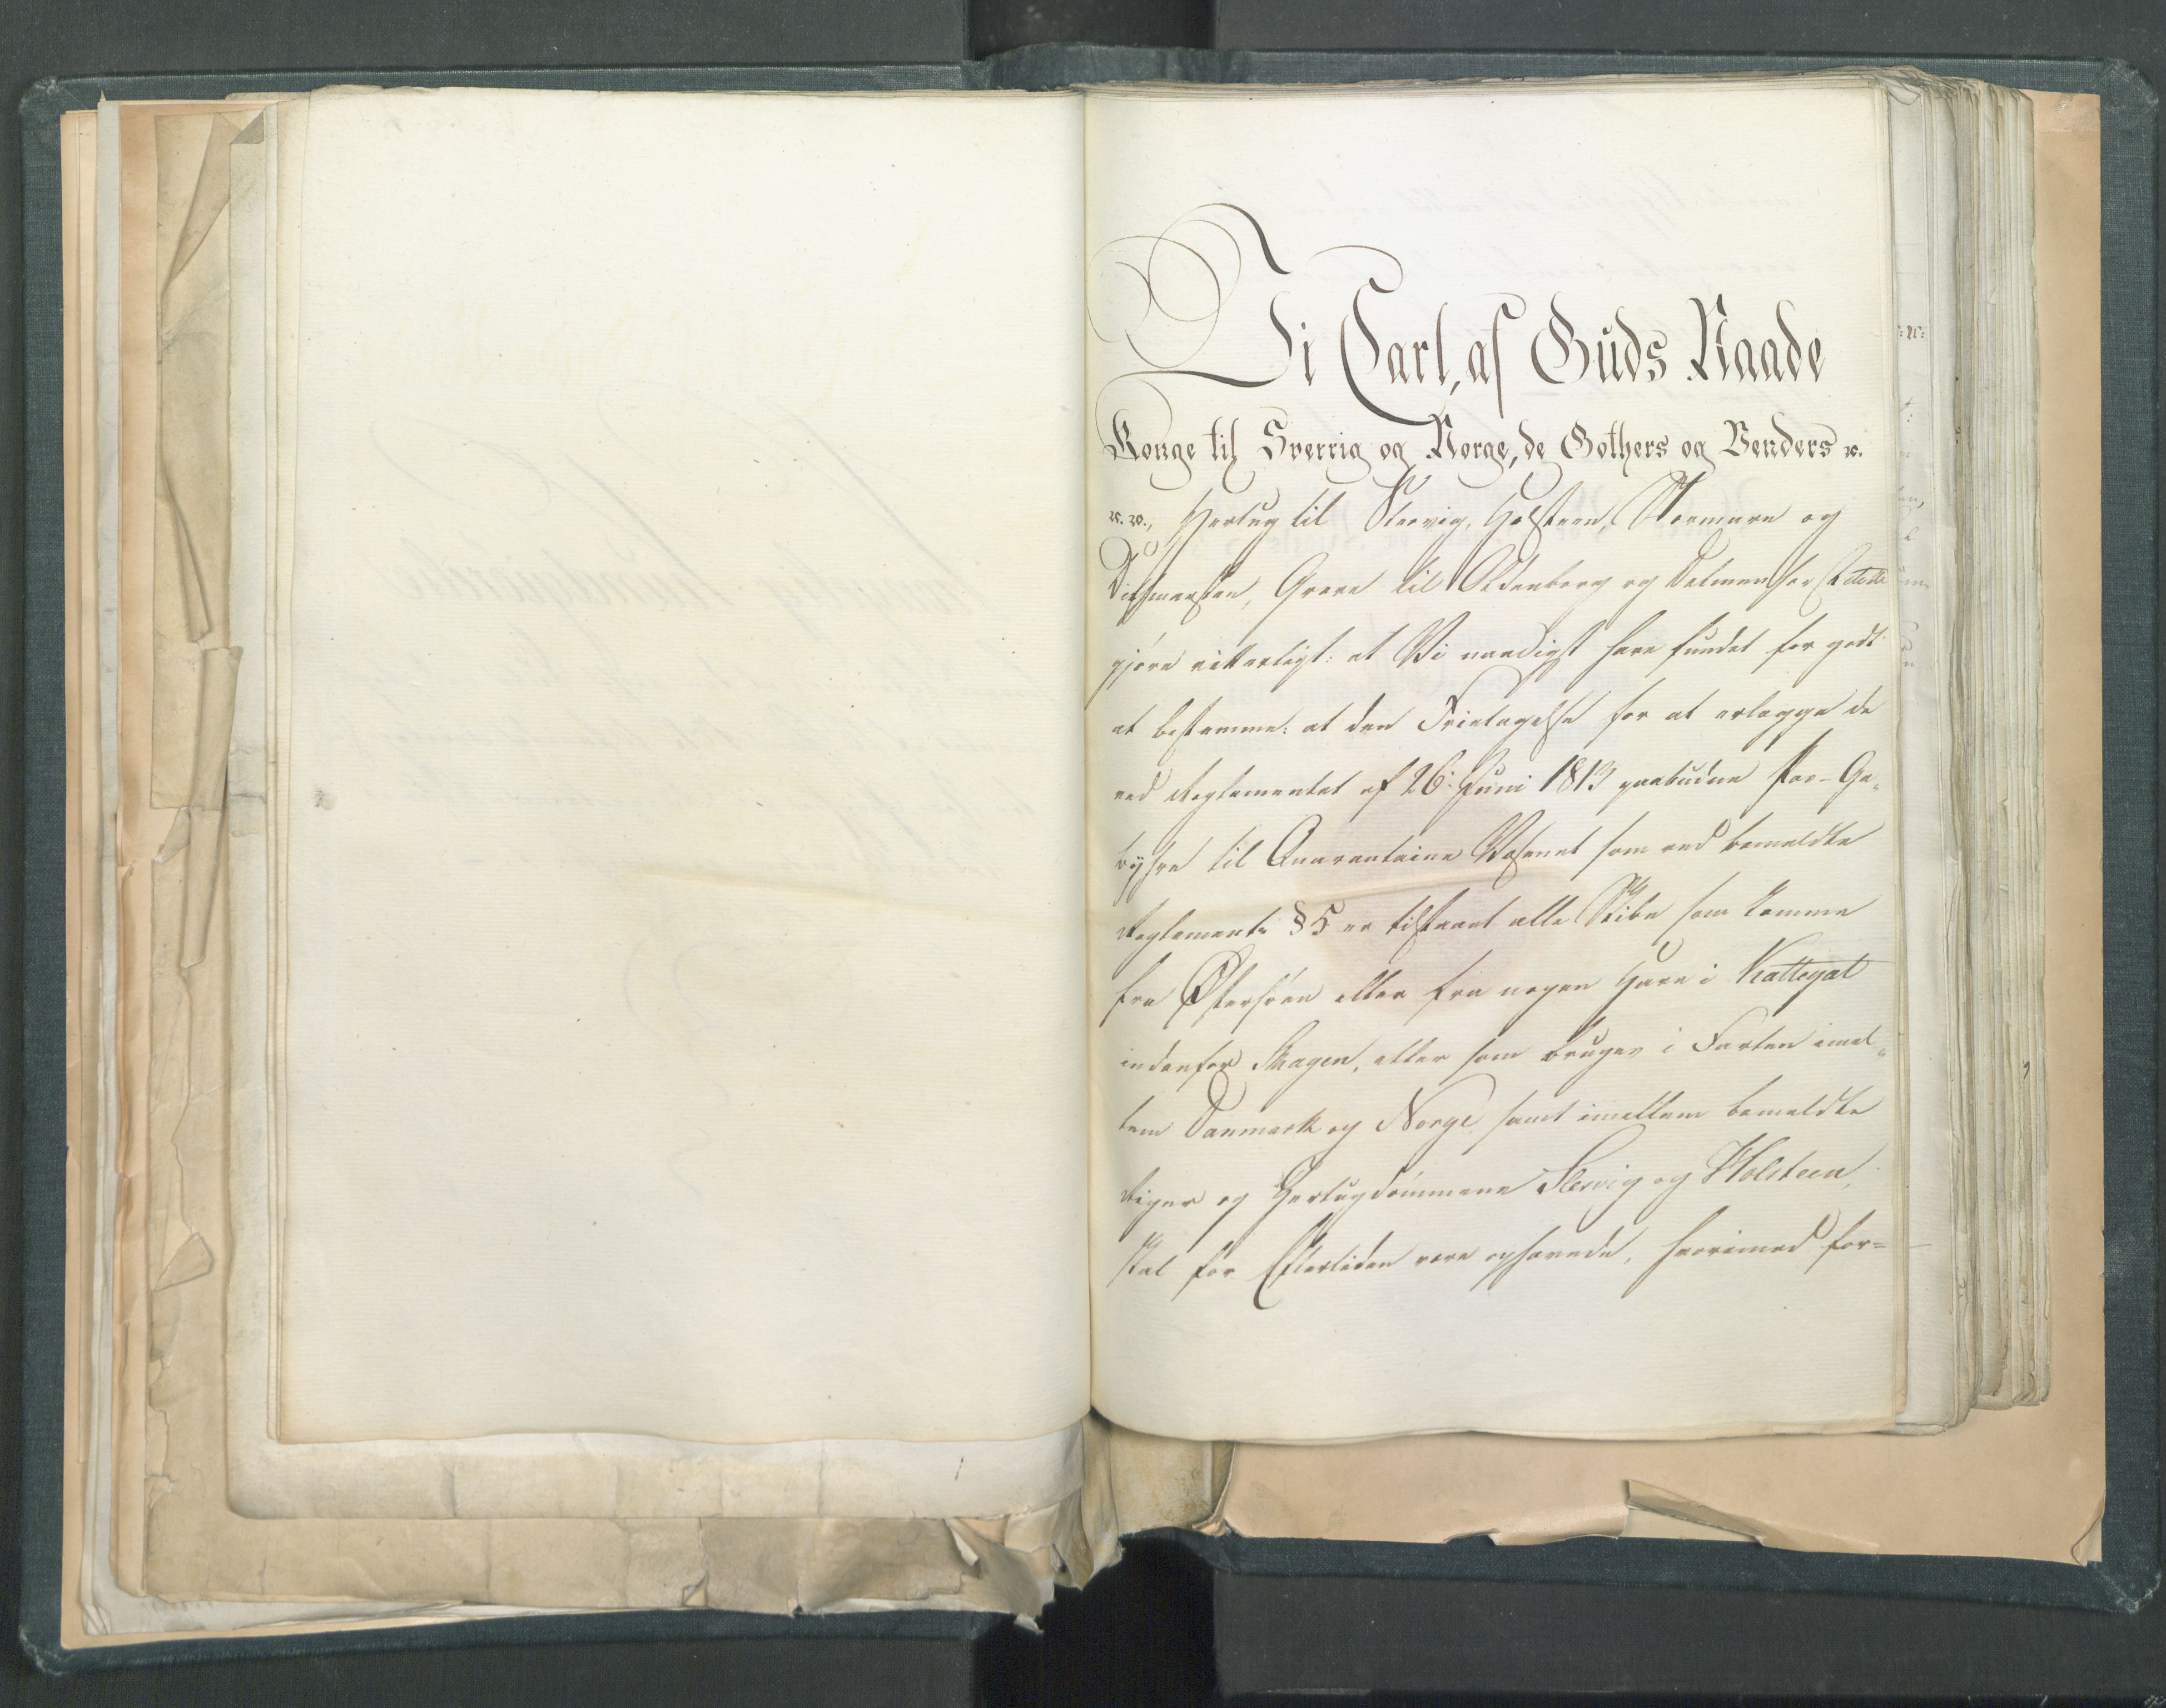 Vi Carl, af Guds Naade
Konge til Sverrig og Norge, de Gothers og Venders ꝛc.
ꝛc. ꝛc., Hertug til Slesvig, Holsteen, Stormarn og
Ditmarsken, Greve til Oldenborg og Delmenhorst
gjøre vitterligt: at Vi naadigst have fundet for godt
at bestemme: at den Fritagelse for at erlægge de
ved Reglementet af 26: Juni 1813 paabudne Søe-Ge„
byhre til Quarantaine Væsenet som ved bemeldte
Reglements § 5 er tilstaaet alle Skibe som komme
fra Østersøen eller fra nogen Havn i Kattegat
indenfor Skagen, eller som bruges i Farten imel„
lem Danmark og Norge samt imellem bemeldte
Riger og Hertugdømmene Slesvig og Holsteen,
skal for Eftertiden være ophævede, hvorimod for=